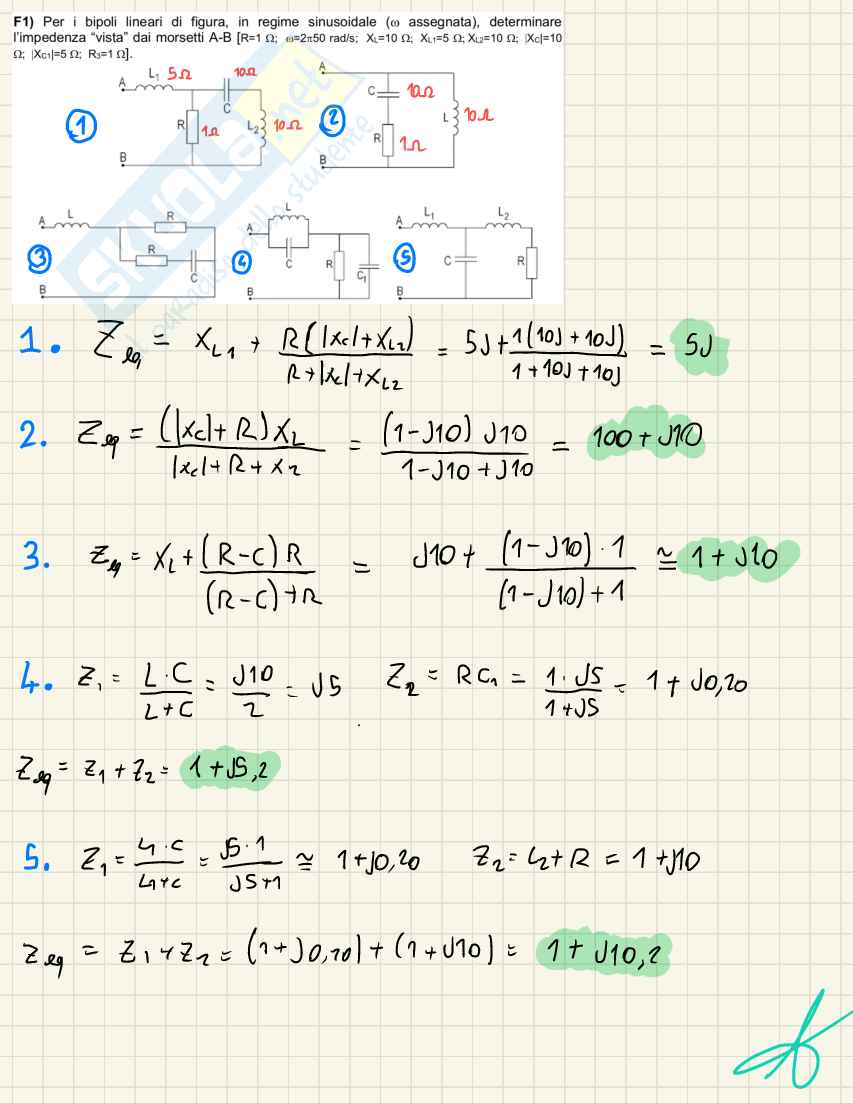 F1) Per i bipoli lineari di figura, in regime sinusoidale (ω assegnata), determinare
l'impedenza "vista" dai morsetti A-B [R=1 Ω; ω=2π50 rad/s; XL=10 Ω; XL1=5 Ω; XL2=10 Ω; |XC|=10
Ω; |XC1|=5 Ω; R3=1 Ω].
A L1 5Ω 10Ω C R 1Ω L2 10Ω B
1
A C 10Ω L 10Ω R 1Ω B
2
A L R R C B
3
A L C R C1 B
4
A L1 L2 C R B
5
SKUOLA.net
il paradiso dello studente
1. Zeq = XL1 + R(|Xc|+XL2) / R+|Xc|+XL2 = 5J + 1(10J+10J) / 1+10J+10J = 5J
2. Zeq = (|Xc|+R)XL / |Xc|+R+X2 = (1-J10) J10 / 1-J10+J10 = 100+J10
3. Zeq = XL + (R-C)R / (R-C)+R = J10 + (1-J10)·1 / (1-J10)+1 ≅ 1+J10
4. Z1 = L·C / L+C = J10 / 2 = J5 Z2 = RC1 = 1·J5 / 1+J5 = 1+J0,20
Zeq = Z1+Z2 = 1+J5,2
5. Z1 = L1·C / L1+C = J5·1 / J5+1 ≅ 1+J0,20 Z2 = L2+R = 1+J10
Zeq = Z1+Z2 = (1+J0,20)+(1+J10) = 1+J10,2